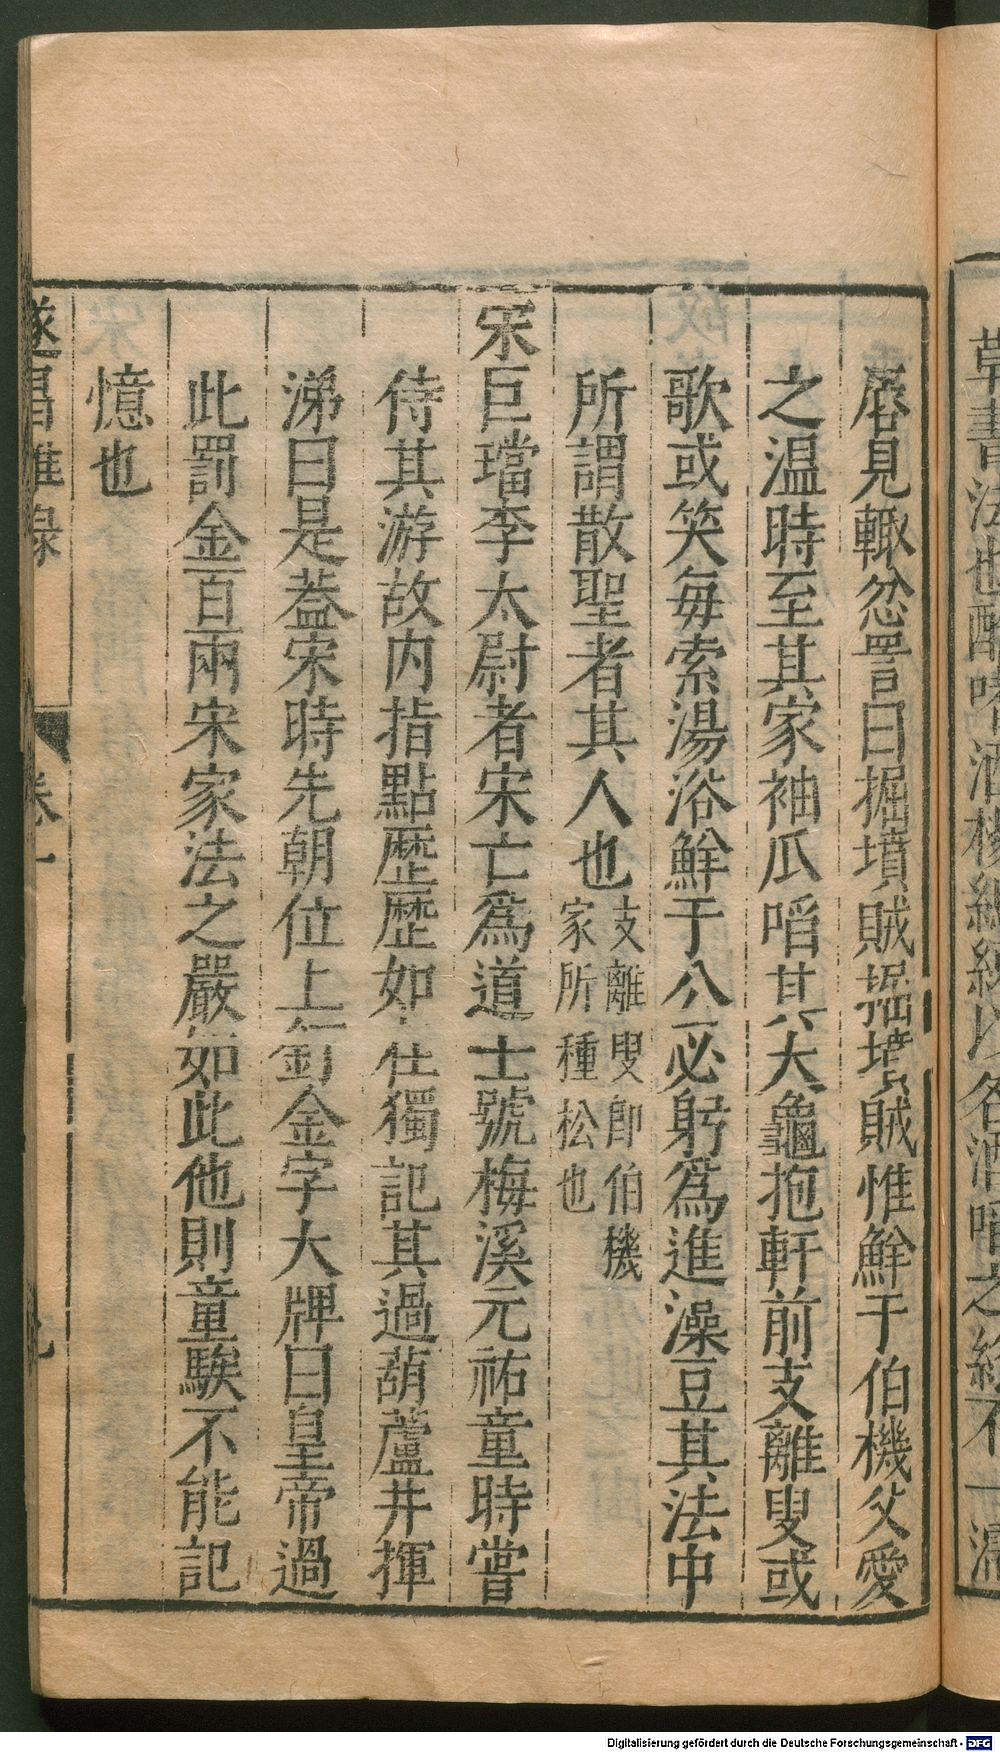 草書法也酷嗜酒楊總統以名酒啗之終不一濡
唇見輒忿詈曰掘墳賊掘墳賊惟鮮于伯機父愛
之温時至其家袖瓜啗其大龜抱軒前支離叟或
歌或笑每索湯浴鮮于公必躬為進澡豆其法中
所謂散聖者其人也支離叟即伯機
家所種松也
宋巨璫李太尉者宋亡為道士號梅溪元祐童時嘗
侍其游故内指點歷歷如在獨記其過葫蘆井揮
涕曰是葢宋時先朝位上釘金字大牌曰皇帝過
此罰金百兩宋家法之嚴如此他則童騃不能記
憶也
遂昌雜錄
卷一
Digitalisierung gefördert durch die Deutsche Forschungsgemeinschaft - DFG